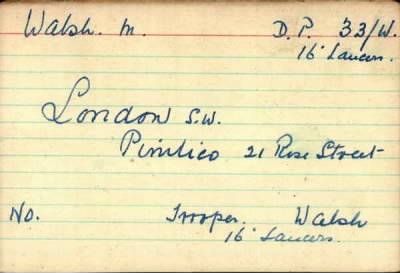 Walsh. M. D. P. 33/W.
16' Lancers.
London S.W.
Pimlico 21 Rose Street
No. Trooper. Walsh
16' Lancers.